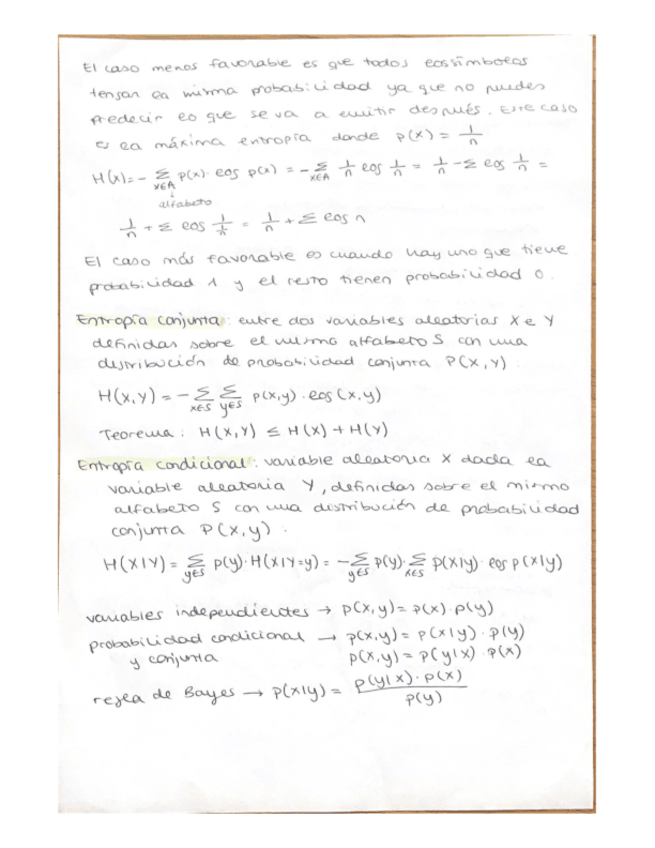 El caso menos favorable es que todos los símbolos
tengan la misma probabilidad ya que no puedes
predecir lo que se va a emitir después. Este caso
es la máxima entropía donde p(x) = 1/n
H(x) = - Σ x∈A p(x) · log p(x) = - Σ x∈A 1/n log 1/n = 1/n - Σ log 1/n =
↓
alfabeto
1/n + Σ log 1/(1/n) = 1/n + Σ log n
El caso más favorable es cuando hay uno que tiene
probabilidad 1 y el resto tienen probabilidad 0.
Entropía conjunta: entre dos variables aleatorias X e Y
definidas sobre el mismo alfabeto S con una
distribución de probabilidad conjunta P(X,Y):
H(X,Y) = - Σ x∈S Σ y∈S p(x,y) · log (x,y)
Teorema: H(X,Y) ≤ H(X) + H(Y)
Entropía condicional: variable aleatoria X dada la
variable aleatoria Y, definidas sobre el mismo
alfabeto S con una distribución de probabilidad
conjunta P(X,y):
H(X|Y) = Σ y∈S p(y) · H(X|Y=y) = - Σ y∈S p(y) · Σ x∈S p(x|y) · log p(x|y)
variables independientes → p(x,y) = p(x) · p(y)
probabilidad condicional → p(x,y) = p(x|y) · p(y)
y conjunta p(x,y) = p(y|x) · p(x)
regla de Bayes → p(x|y) = p(y|x) · p(x) / p(y)